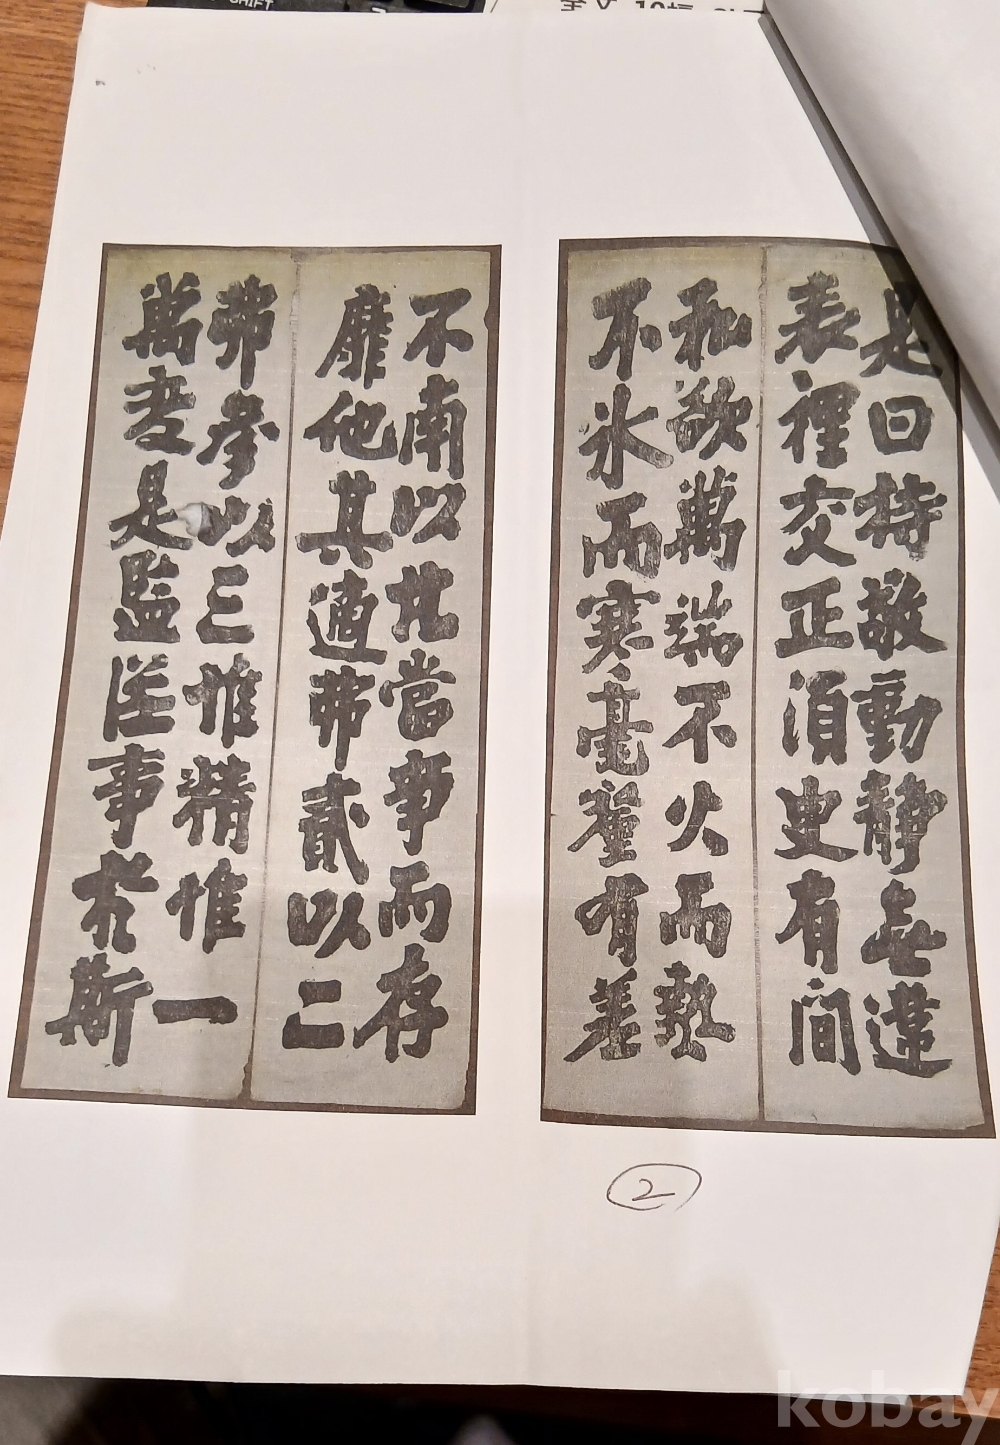 SHIFT
不南以北當爭而存
靡他其適弗貳以二
弗參以三惟精惟一
萬變是監從事於斯
是曰持敬動靜無違
表裡交正須臾有間
私欲萬端不火而熱
不氷而寒毫釐有差
2
kobay